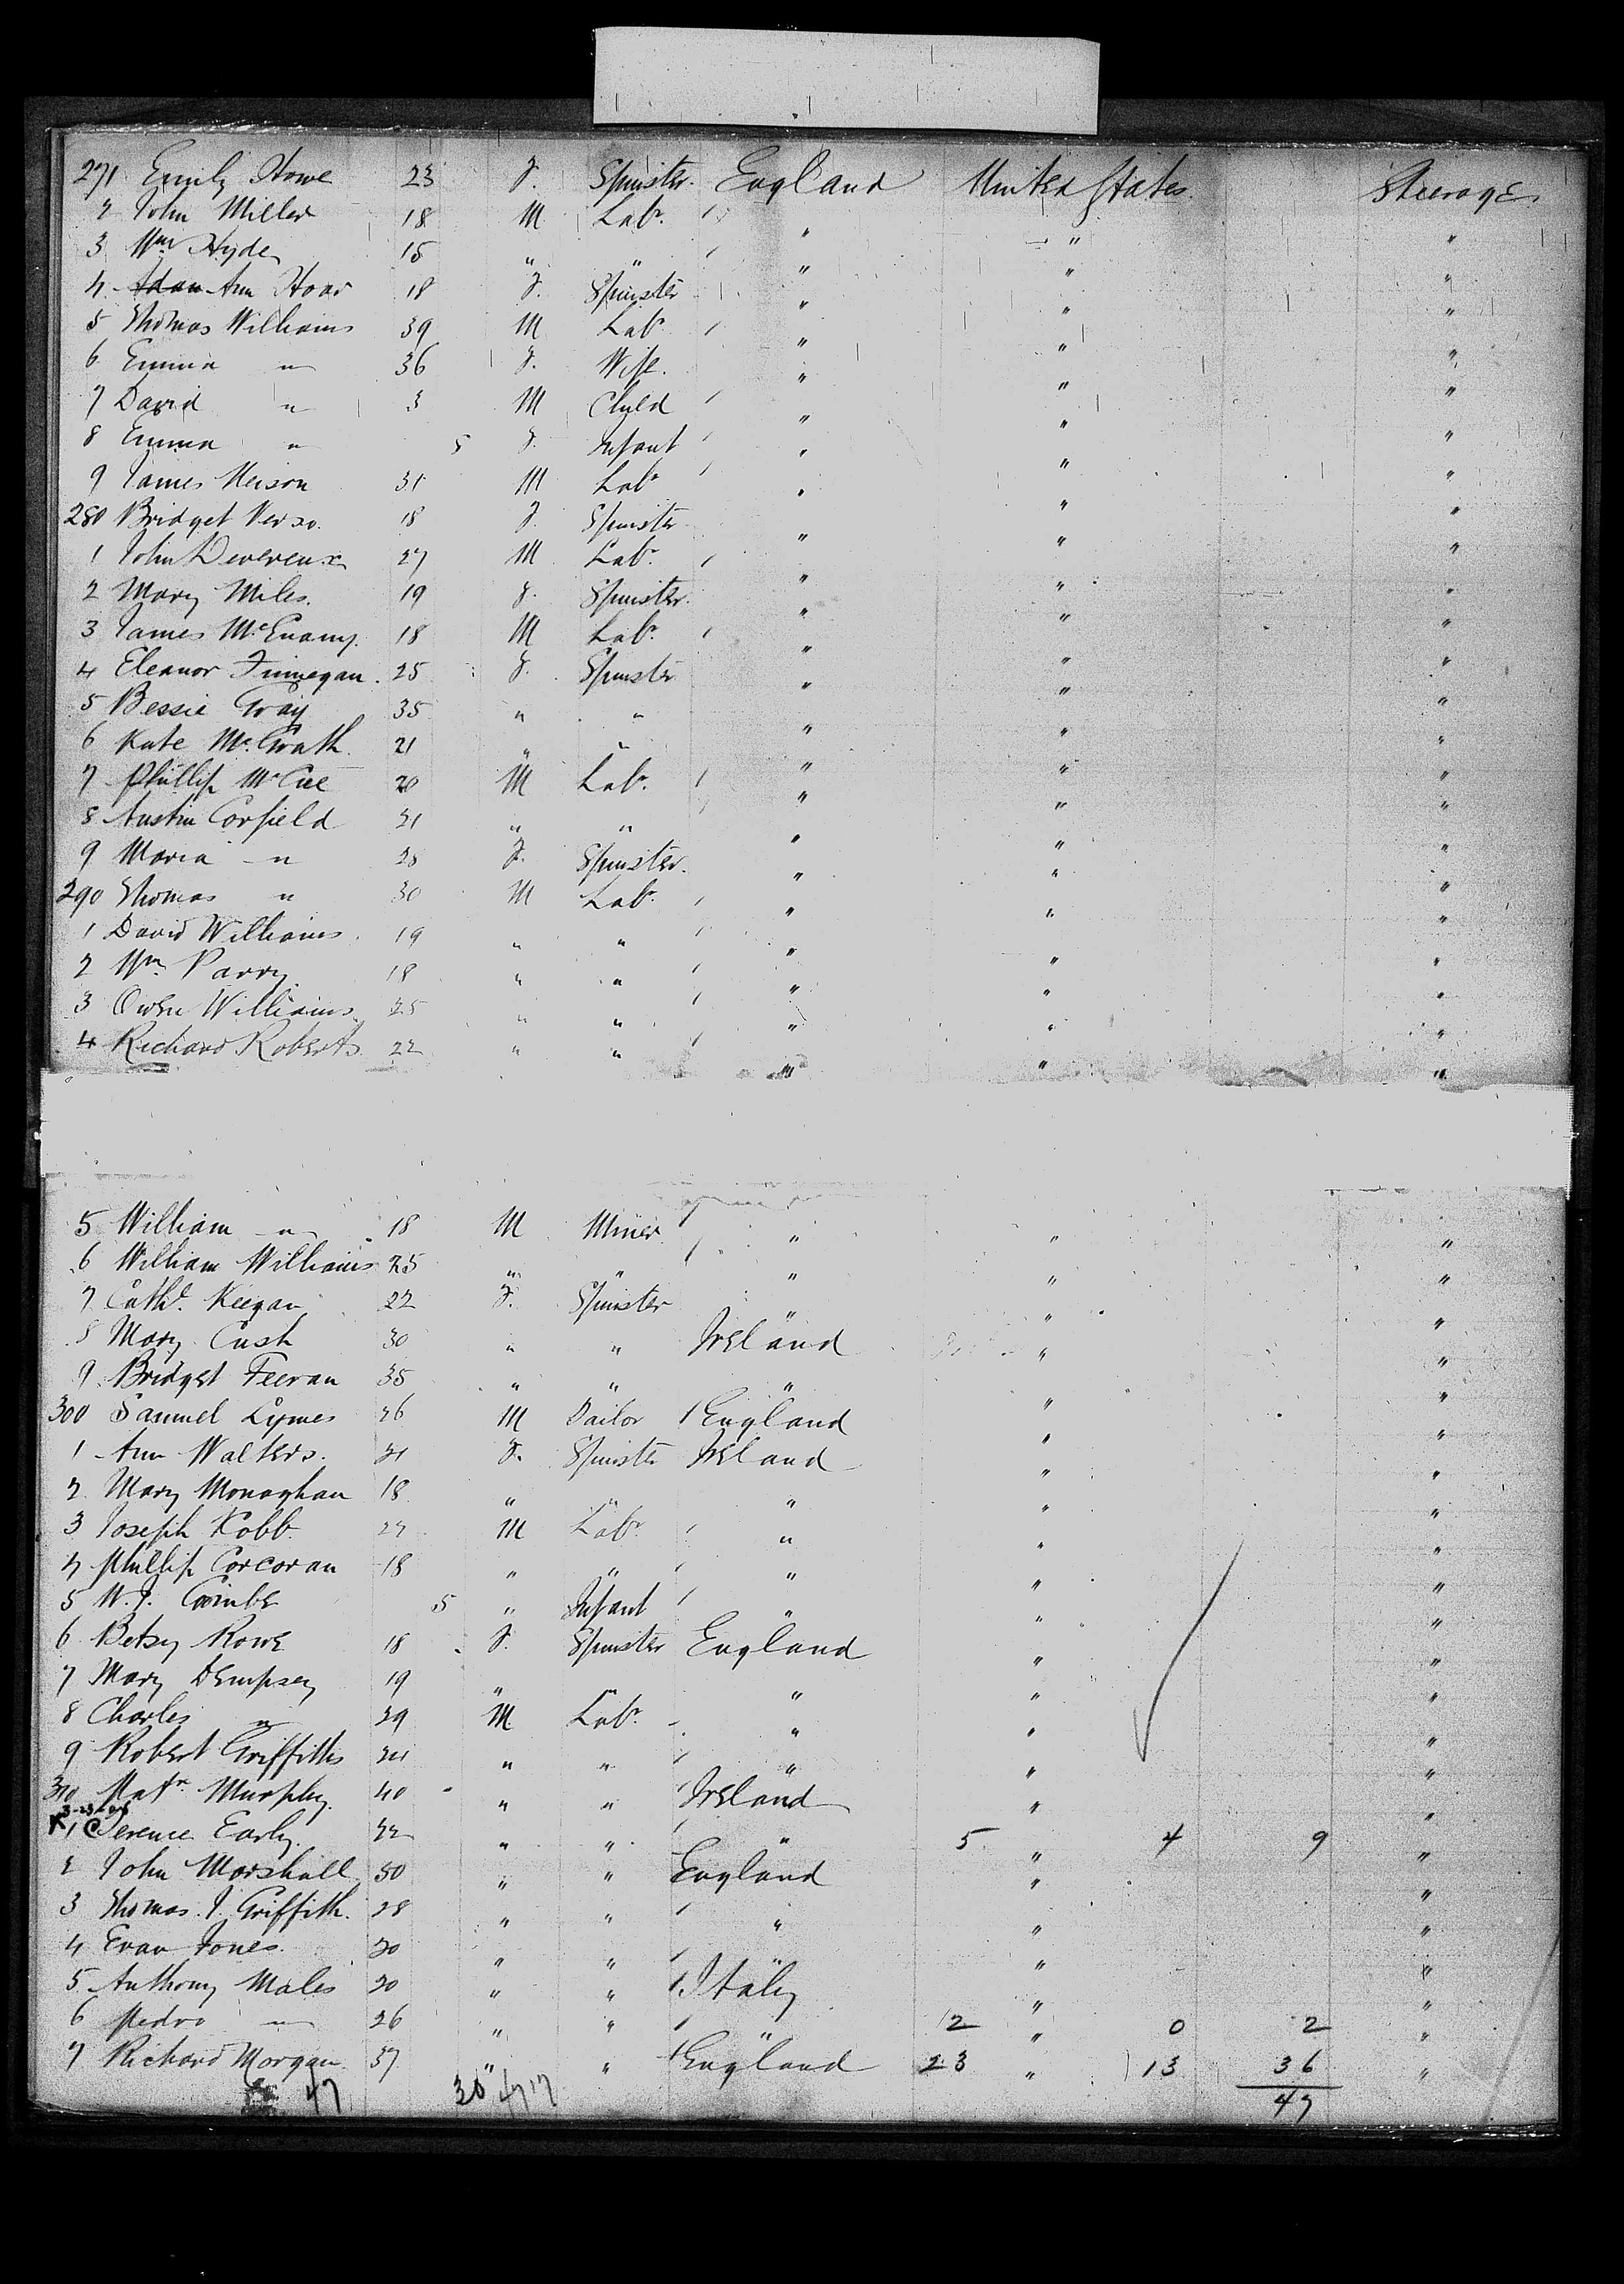 271 Emily Howe 23 F. Spinster. England United States Steerage
2 John Miller 18 M Labr. " " "
3 Wm Hyde 15 " " " " "
4 Ann Hoar 18 F. Spinster " " "
5 Thomas Williams 39 M Labr " " "
6 Emma " 36 F. Wife. " " "
7 David " 3 M Child " " "
8 Emma " 5 F. Infant " " "
9 James 31 M Labr " " "
280 Bridget 18 F. Spinster " " "
1 John Devereux 27 M Labr. " " "
2 Mary Miles. 19 F. Spinster. " " "
3 James McEnamy. 18 M Labr. " " "
4 Eleanor Finnegan. 25 F. Spinster " " "
5 Bessie Gray 35 " " " " "
6 Kate McGrath. 21 " " " " "
7 Phillip McCue 20 M Labr. " " "
8 Austin Corfield 21 " " " " "
9 Maria " F. Spinster. " " "
290 Thomas " 30 M Labr. " " "
1 David Williams. 19 " " " " "
2 Wm Parry 18 " " " " "
3 Owen Williams 25 " " " " "
4 Richard Roberts 22 " " " " "
5 William " 18 M Miner " " "
6 William Williams 25 " " " " "
7 Cathe. Keegan 22 F. Spinster " " "
8 Mary Cush 30 " " Ireland " "
9 Bridget Feeran 35 " " " " "
300 Samuel Lymes 26 M Sailor England " "
1 Ann Walters. 21 F. Spinster Ireland " "
2 Mary Monaghan 18 " " " " "
3 Joseph Kobb. M Labr. " " "
4 Phillip Corcoran 18 " " " " "
5 W. J. 5 " Infant " " "
6 Betsy Rowe 18 F. Spinster England " "
7 Mary Dempsey 19 " " " " "
8 Charles " 29 M Labr. " " "
9 Robert Griffiths " " " " "
310 Murphy. 40 " " Ireland " "
1 Terence Early. 22 " " " 5 " 4 9 "
2 John Marshall 50 " " England " "
3 Thomas. J. Griffith. 28 " " " " "
4 Evan Jones. 20 " " " " "
5 Anthony Males 20 " " Italy " "
6 Pedro " 26 " " " 2 " 0 2 "
7 Richard Morgan 37 " " England 23 " 13 36 "
47 30 17 47